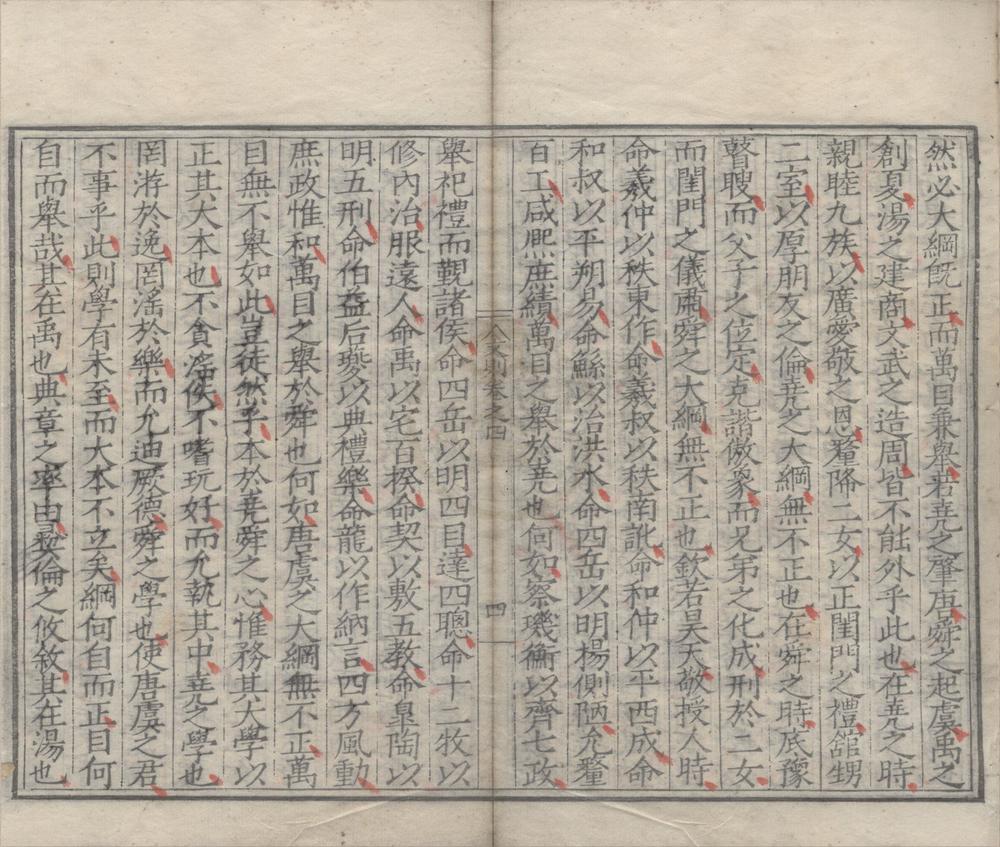 然必大綱旣正而萬目兼舉若堯之肇唐舜之起虞禹之
創夏湯之建商文武之造周皆不能外乎此也在堯之時
親睦九族以廣愛敬之恩釐降二女以正閨門之禮舘甥
二室以厚朋友之倫堯之大綱無不正也在舜之時底豫
瞽瞍而父子之位定克諧傲象而兄弟之化成刑於二女
而閨門之儀肅舜之大綱無不正也欽若昊天敬授人時
命羲仲以秩東作命羲叔以秩南訛命和仲以平西成命
和叔以平朔易命鯀以治洪水命四岳以明揚側陋允釐
百工咸熙庶績萬目之舉於堯也何如察璣衡以齊七政
八文則卷之四
四
舉祀禮而覲諸侯命四岳以明四目達四聰命十二牧以
修內治服遠人命禹以宅百揆命契以敷五教命皐陶以
明五刑命伯益后夔以典禮樂命龍以作納言四方風動
庶政惟和萬目之舉於舜也何如唐虞之大綱無不正萬
目無不舉如此豈徒然乎本於堯舜之心惟務其大學以
正其大本也不貪淫佚不嗜玩好而允執其中堯之學也
罔游於逸罔滛於樂而允迪厥德舜之學也使唐虞之君
不事乎此則學有未至而大本不立矣綱何自而正目何
自而舉哉其在禹也典章之率由彛倫之攸敘其在湯也